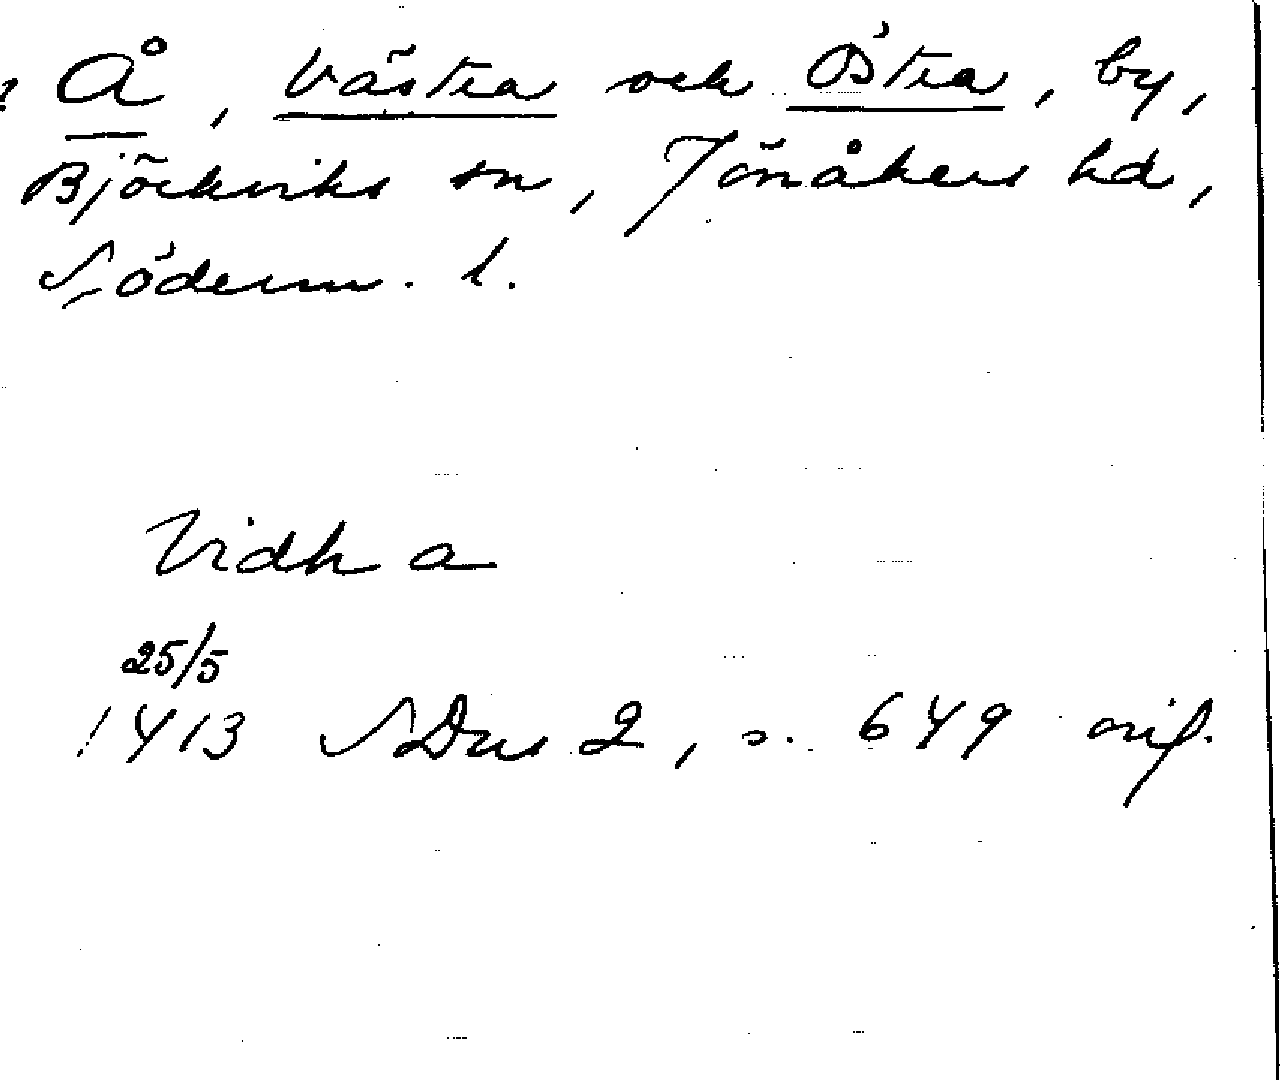 ? Å, Västra och Östra, by,
Björkviks sn, Jönåkers hd,
Söderm. l.
Vidh a
25/5
1413 SDns 2, s. 649 orig.